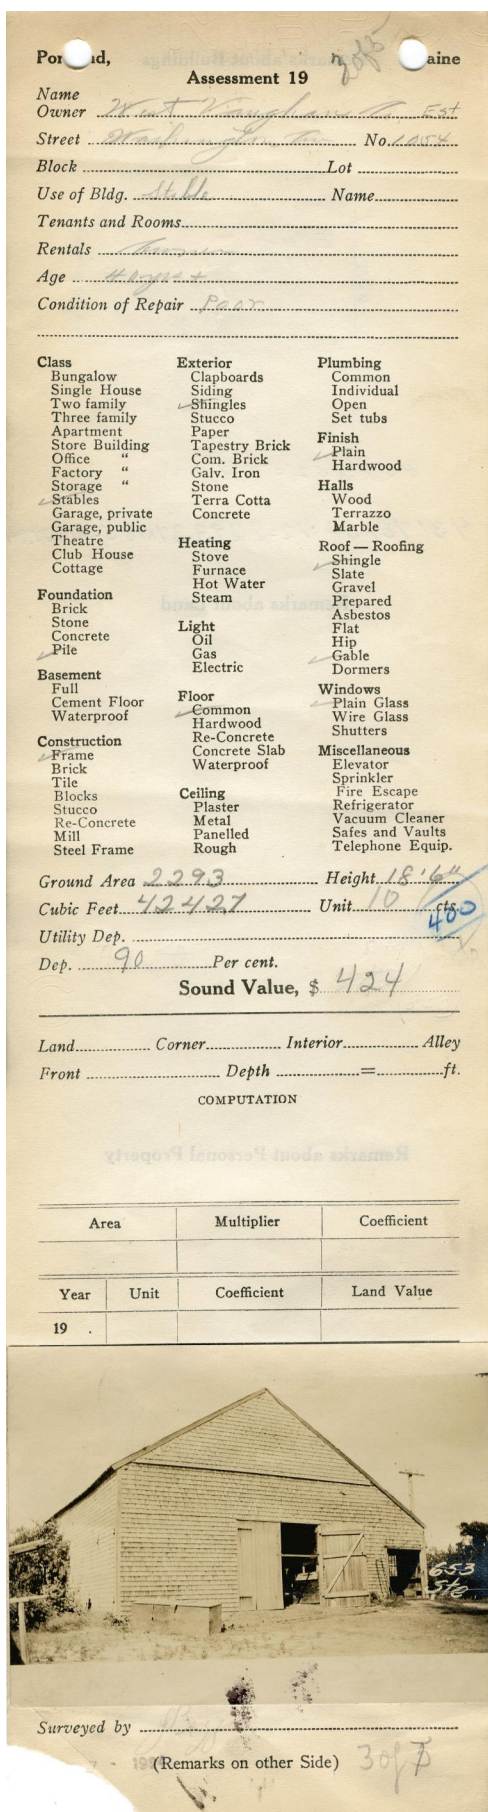 Por nd, aine
2 of 5
Assessment 19
Name
Owner West Vaughan Est
Street Washington Ave No. 1054
Block Lot
Use of Bldg. Stable Name
Tenants and Rooms
Rentals
Age 40 yrs +
Condition of Repair Poor
Class
Bungalow
Single House
Two family
Three family
Apartment
Store Building
Office "
Factory "
Storage "
✓Stables
Garage, private
Garage, public
Theatre
Club House
Cottage
Foundation
Brick
Stone
Concrete
✓Pile
Basement
Full
Cement Floor
Waterproof
Construction
✓Frame
Brick
Tile
Blocks
Stucco
Re-Concrete
Mill
Steel Frame
Exterior
Clapboards
Siding
✓Shingles
Stucco
Paper
Tapestry Brick
Com. Brick
Galv. Iron
Stone
Terra Cotta
Concrete
Heating
Stove
Furnace
Hot Water
Steam
Light
Oil
Gas
Electric
Floor
✓Common
Hardwood
Re-Concrete
Concrete Slab
Waterproof
Ceiling
Plaster
Metal
Panelled
Rough
Plumbing
Common
Individual
Open
Set tubs
Finish
✓Plain
Hardwood
Halls
Wood
Terrazzo
Marble
Roof — Roofing
✓Shingle
Slate
Gravel
Prepared
Asbestos
Flat
Hip
✓Gable
Dormers
Windows
✓Plain Glass
Wire Glass
Shutters
Miscellaneous
Elevator
Sprinkler
Fire Escape
Refrigerator
Vacuum Cleaner
Safes and Vaults
Telephone Equip.
Ground Area 2293 Height 18'6"
Cubic Feet 42427 Unit 10 cts.
400
Utility Dep.
Dep. 90 Per cent.
Sound Value, $ 424
Land Corner Interior Alley
Front Depth = ft.
COMPUTATION
Remarks about Personal Property
Area Multiplier Coefficient
Year Unit Coefficient Land Value
19 .
653
Sto
Surveyed by
(Remarks on other Side) 3 of 5